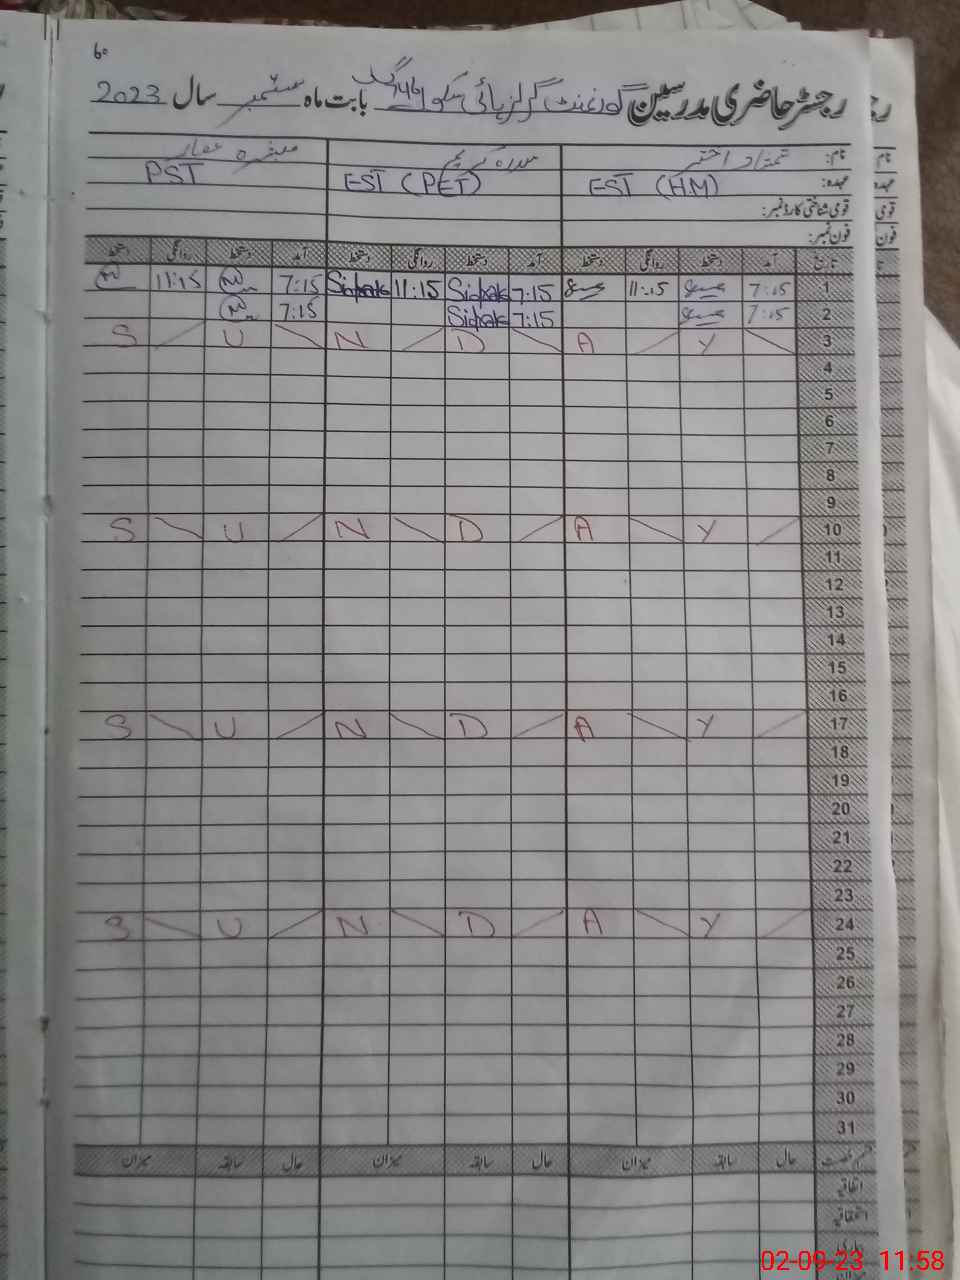 ۶۰
رجسٹر حاضری مدرسین گورنمنٹ گرلز ہائی سکول 146 گ ب بابت ماہ ستمبر سال 2023
نام:
عہدہ: EST (HM) EST (PET) PST
قومی شناختی کارڈ نمبر:
فون نمبر:
تاریخ آمد دستخط روانگی دستخط آمد دستخط روانگی دستخط آمد دستخط روانگی دستخط
1 7:15 11:15 7:15 Sidrak 11:15 Sidrak 7:15 11:15
2 7:15 7:15 Sidrak 7:15
S U N D A Y 3
4
5
6
7
8
9
S U N D A Y 10
11
12
13
14
15
16
S U N D A Y 17
18
19
20
21
22
23
S U N D A Y 24
25
26
27
28
29
30
31
قسم رخصت حال سابقہ میزان حال سابقہ میزان حال سابقہ میزان
اتفاقیہ
استحقاقیہ
بیماری
02-09-23 11:58